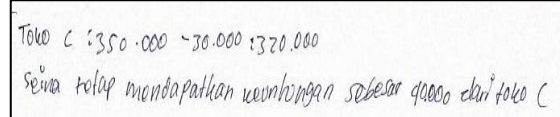 Toko C : 350.000 - 30.000 : 320.000
Seina tetap mendapatkan keunhungan sebesar 90000 dari toko C